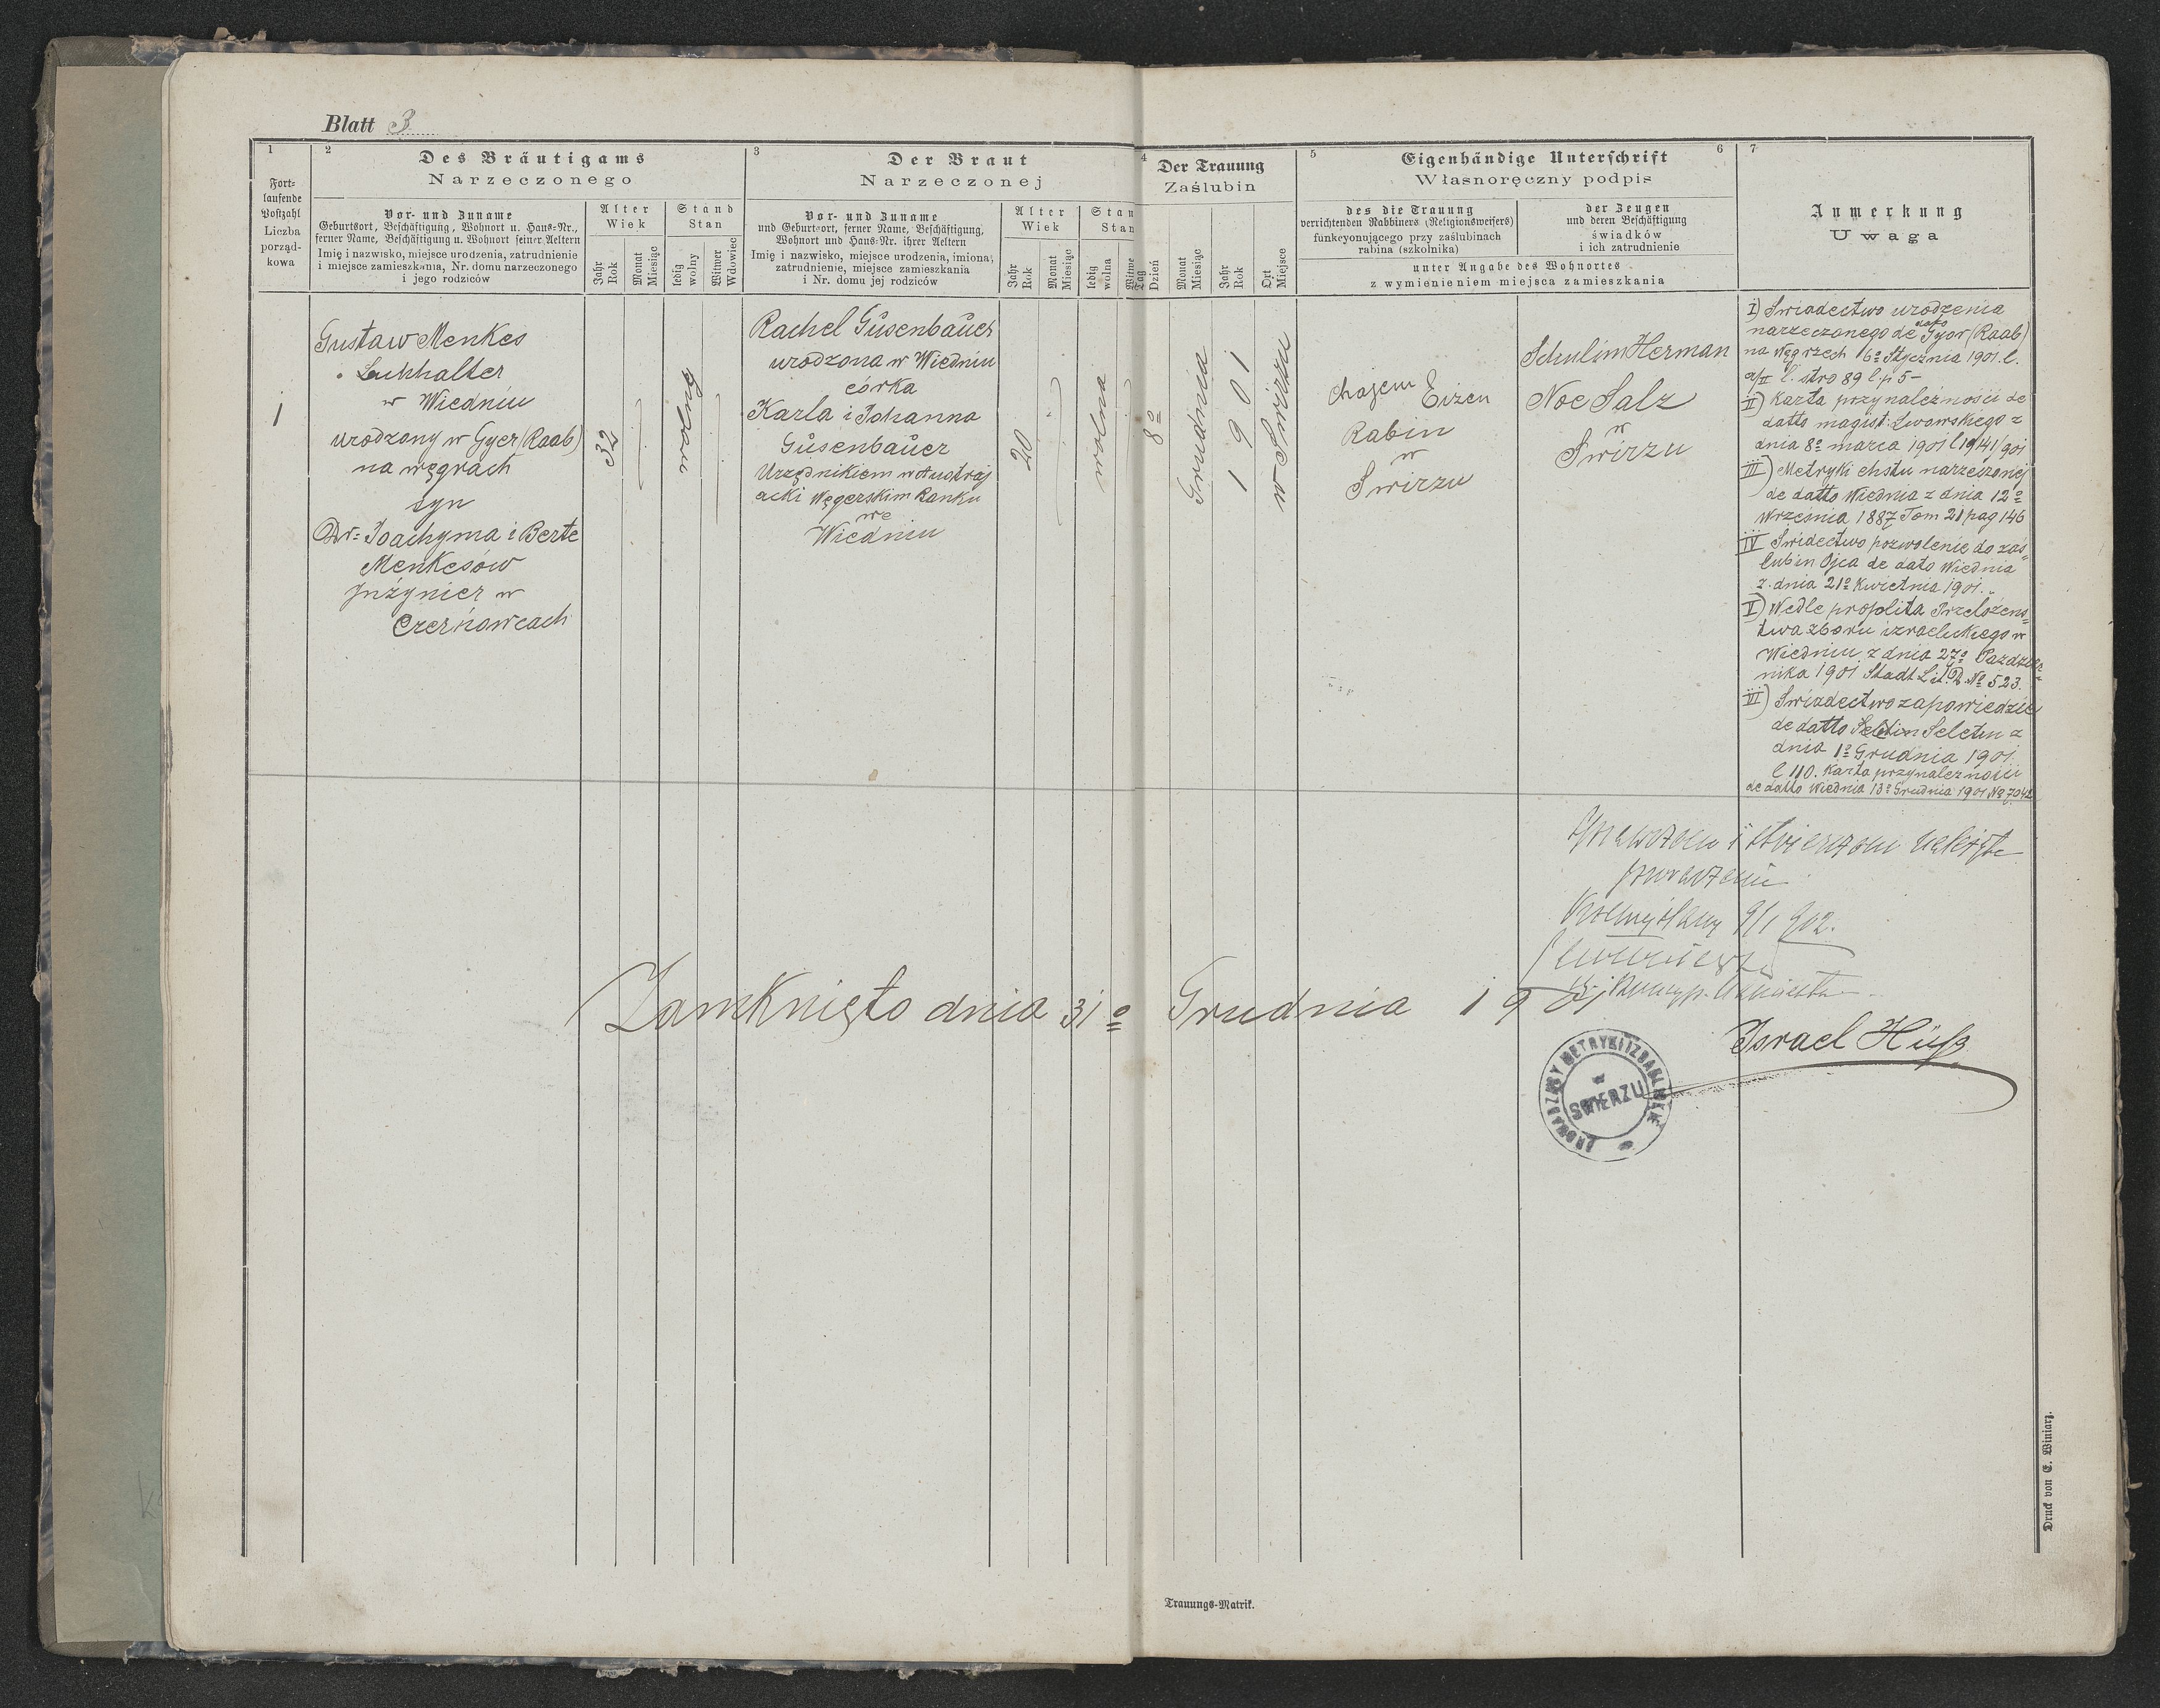 Blatt 3
1
Fort-
laufende
Postzahl
Liczba
porząd-
kowa
2
Des Bräutigams
Narzeczonego
Vor- und Zuname
Geburtsort, Beschäftigung, Wohnort u. Haus-Nr.,
ferner Name, Beschäftigung u. Wohnort seiner Aeltern
Imię i nazwisko, miejsce urodzenia, zatrudnienie
i miejsce zamieszkania, Nr. domu narzeczonego
i jego rodziców
Alter
Wiek
Jahr
Rok
Monat
Miesiąc
Stand
Stan
ledig
wolny
Witwer
Wdowiec
3
Der Braut
Narzeczonej
Vor- und Zuname
und Geburtsort, ferner Name, Beschäftigung,
Wohnort und Haus-Nr. ihrer Aeltern
Imię i nazwisko, miejsce urodzenia, imiona,
zatrudnienie, miejsce zamieszkania
i Nr. domu jej rodziców
Alter
Wiek
Jahr
Rok
Monat
Miesiąc
Stan
Stan
ledig
wolna
Witwe
4
Der Trauung
Zaślubin
Tag
Dzień
Monat
Miesiąc
Jahr
Rok
Ort
Miejsce
5
Eigenhändige Unterschrift
Własnoręczny podpis
6
des die Trauung
verrichtenden Rabbiners (Religionsweisers)
funkcyonującego przy zaślubinach
rabina (szkolnika)
der Zeugen
und deren Beschäftigung
świadków
i ich zatrudnienie
unter Angabe des Wohnortes
z wymienieniem miejsca zamieszkania
7
Anmerkung
Uwaga
1
Gustaw Menkes
Buchhalter
w Wiedniu
urodzony w Gyer (Raab)
na węgrach
syn
Dr. Joachyma i Berte
Menkesów
Jnżynier w
Czerńowcach
32
wolny
Rachel Gůsenbaůer
urodzona w Wiedniu
córka
Karla i Johanna
Gůsenbaůer
Urzędnikiem w Austryj
acki Węgerskim Banku
we
Wiedniu
20
wolna
8º
Grudnia
1901
w Swirzu
Chajem Eizen
Rabin
w
Swirzu
Schulim Herman
Noe Salz
w
Swirzu
I) Swiadectwo urodzenia
narzeczonego de dato Gyor (Raab)
na Węgrzech 16º Stycznia 1901. l.
a/II l. stro 89 l. p 5-
II) Karta przynależnośći de
datto magist. Lwowskiego z
dnia 8º marca 1901 l 19141/901
III) Metryki chstu narzeczonej
de datto Wiednia z dnia 12º
Września 1887 Tom 21 pag 146
IV Swidectwo pozwolenie do zaś=
lubin Ojca de dato Wiednia
z dnia 21º Kwietnia 1901.
V) Wedle propolita Przełożens=
twa zboru izraelickiego w
Wiedniu z dnia 27º Pazdzier=
nika 1901 Stadt Lit. B. Nº 523.
VI) Swiadectwo zapowiedzie
de datto Seletin Seletin z
dnia 1º Grudnia 1901.
l 110. Karta przynalezności
de datto Wiednia 13º Grudnia 1901 Nº 7042
i stwierdzam
9/1 902.
Zamknięto dnia 31º Grudnia 1901
Israel Hüß
PROWADZĄCY METRYKI IZRAELICKIE
w
SWIRZU
Trauungs-Matrik.
Druck von E. Winiarz.